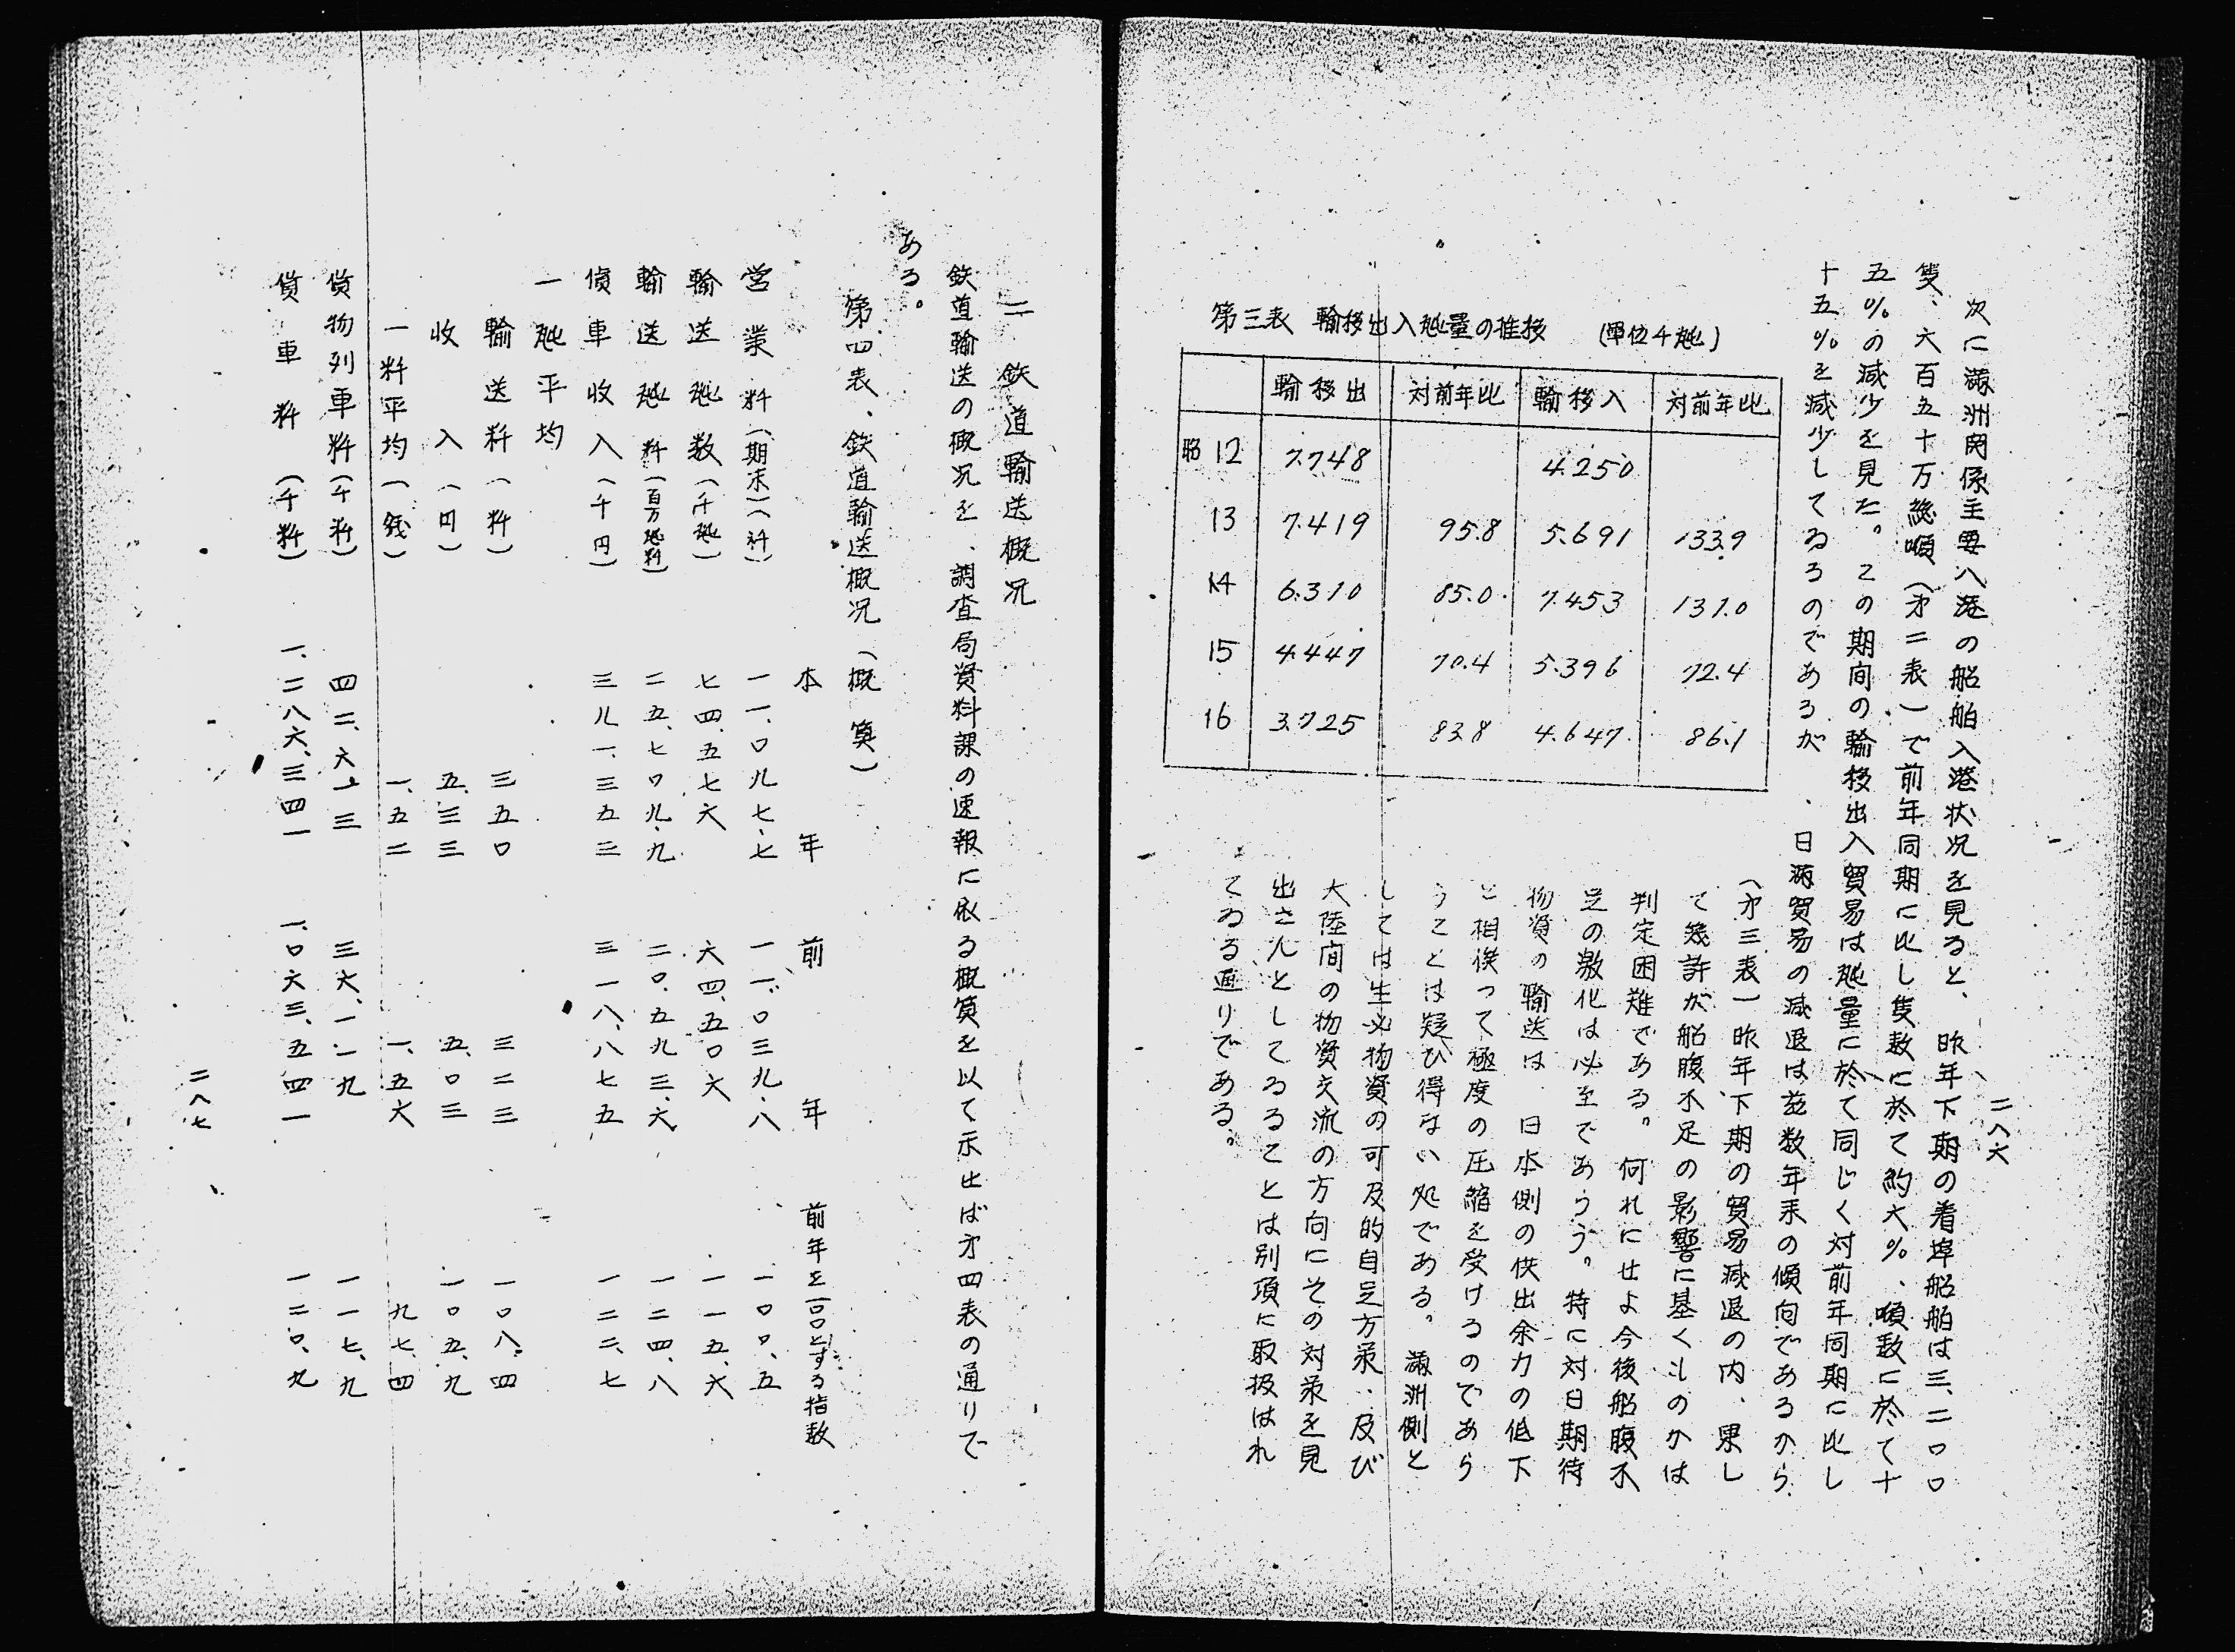 二八六
次に満洲関係主要八港の船舶入港状況を見ると、昨年下期の着埠船舶は三、二〇〇
隻、六百五十万総噸(才二表)で前年同期に比し隻数に於て約六%、噸数に於て十
五%の減少を見た。この期間の輸移出入貿易は瓲量に於て同じく対前年同期に比し
十五%を減少してゐるのであるが、日満貿易の減退は茲数年来の傾向であるから
(才三表)昨年下期の貿易減退の内、果し
て幾許が船腹不足の影響に基くものかは
判定困難である。何れにせよ今後船腹不
足の激化は必至であらう。特に対日期待
物資の輸送は日本側の供出余力の低下
と相俟って極度の圧縮を受けるのであら
うことは疑ひ得ない処である。満洲側と
しては生必物資の可及的自足方策、及び
大陸間の物資交流の方向にその対策を見
出さんとしてゐることは別項に取扱はれ
てゐる通りである。
第三表 輸移出入瓲量の推移 (單位千瓲)
輸移出 対前年比 輸移入 対前年比
昭12 7.748 4.250
13 7.419 95.8 5.691 133.9
14 6.310 85.0 7.453 131.0
15 4.447 70.4 5.396 72.4
16 3.725 83.8 4.647 86.1
二 鉄道輸送概況
鉄道輸送の概況を、調査局資料課の速報に依る概算を以て示せば才四表の通りで
ある。
第四表、鉄道輸送概況(概算)
本年 前年 前年を一〇〇とする指数
営業粁(期末)(粁) 一一、〇九七・七 一一、〇三九・八 一〇〇、五
輸送瓲数(千瓲) 七四、五七六 六四、五〇六 一一五、六
輸送瓲粁(百万瓲粁) 二五、七〇九、九 二〇、五九三、六 一二四、八
貨車收入(千円) 三八一、三五三 三一八、八七五 一二二、七
一瓲平均
輸送粁(粁) 三五〇 三二三 一〇八、四
收入(円) 五、三三 五、〇三 一〇五、九
一粁平均(銭) 一、五二 一、五六 九七、四
貨物列車粁(千粁) 三六、一一九 一一七、九
貨車粁(千粁) 一、二八六、三四一 一、〇六三、五四一 一二〇、九
二八七